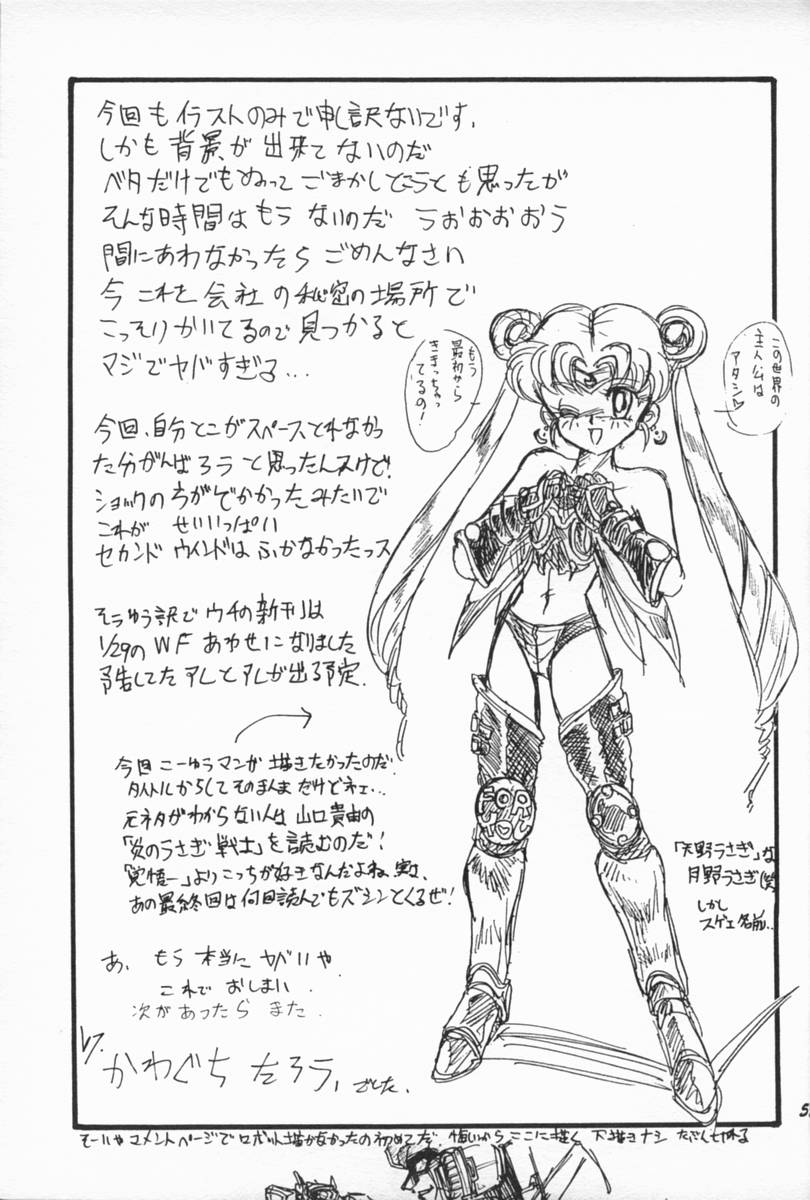 今回もイラストのみで申し訳ないです、
しかも背景が出来てないのだ
ベタだけでもぬってごまかしとこうとも思ったが
そんな時間はもうないのだ うおおおおう
間にあわなかったらごめんなさい
今これを会社の秘密の場所で
こっそりかいてるので見つかると
マジでヤバすぎる...
もう
最初から
きまっちゃっ
てるの!
この世界の
主人公は
アタシ♡
今回、自分とこがスペースとれなかっ
た分がんばろうと思ったんスけど!
ショックのちがでかかったみたいで
これが せいいっぱい
セカンドウインドはふかなかったっス
そうゆう訳でウチの新刊は
1/29のWFあわせになりました
予告してたアレとアレが出る予定.
今回こーゆうマンガ描きたかったのだ!
タイトルからしてそのまんまだけどネェ...
元ネタがわからない人は山口貴由の
「炎のうさぎ戦士」を読むのだ!
「覚悟ー」よりこっちが好きなんだよね実は、
あの最終回は何回読んでもズシンとくるぜ!
「天野うさぎ」な
月野うさぎ(笑
しかし
スゲェ名前..
あ、もう本当にヤバいや
これでおしまい.
次があったらまた
かわぐちたろう、でした.
そーいやコメントページでロボット描かなかったの初めてだ.悔しいからここに描く 下描きナシ